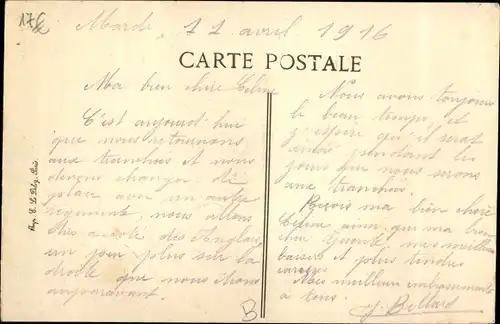 17€
Mardi, 11 avril 1916
CARTE POSTALE
Ma bien chère Céline
C'est aujourd'hui
que nous retournons
aux tranchées et nous
devons changer de
place avec un autre
régiment, nous allons
être à côté des Anglais
un peu plus sur la
droite que nous étions
auparavant.
Nous avons toujours
le beau temps, et
j'espère qu'il serat
ainsi pendant les
jours que nous serons
aux tranchées.
Reçois ma bien chère
Céline, ainsi que ma bien
chère mes meilleurs
baisers et plus tendres
caresses
Mes meilleurs embrassements
à tous.
J. Billard
B